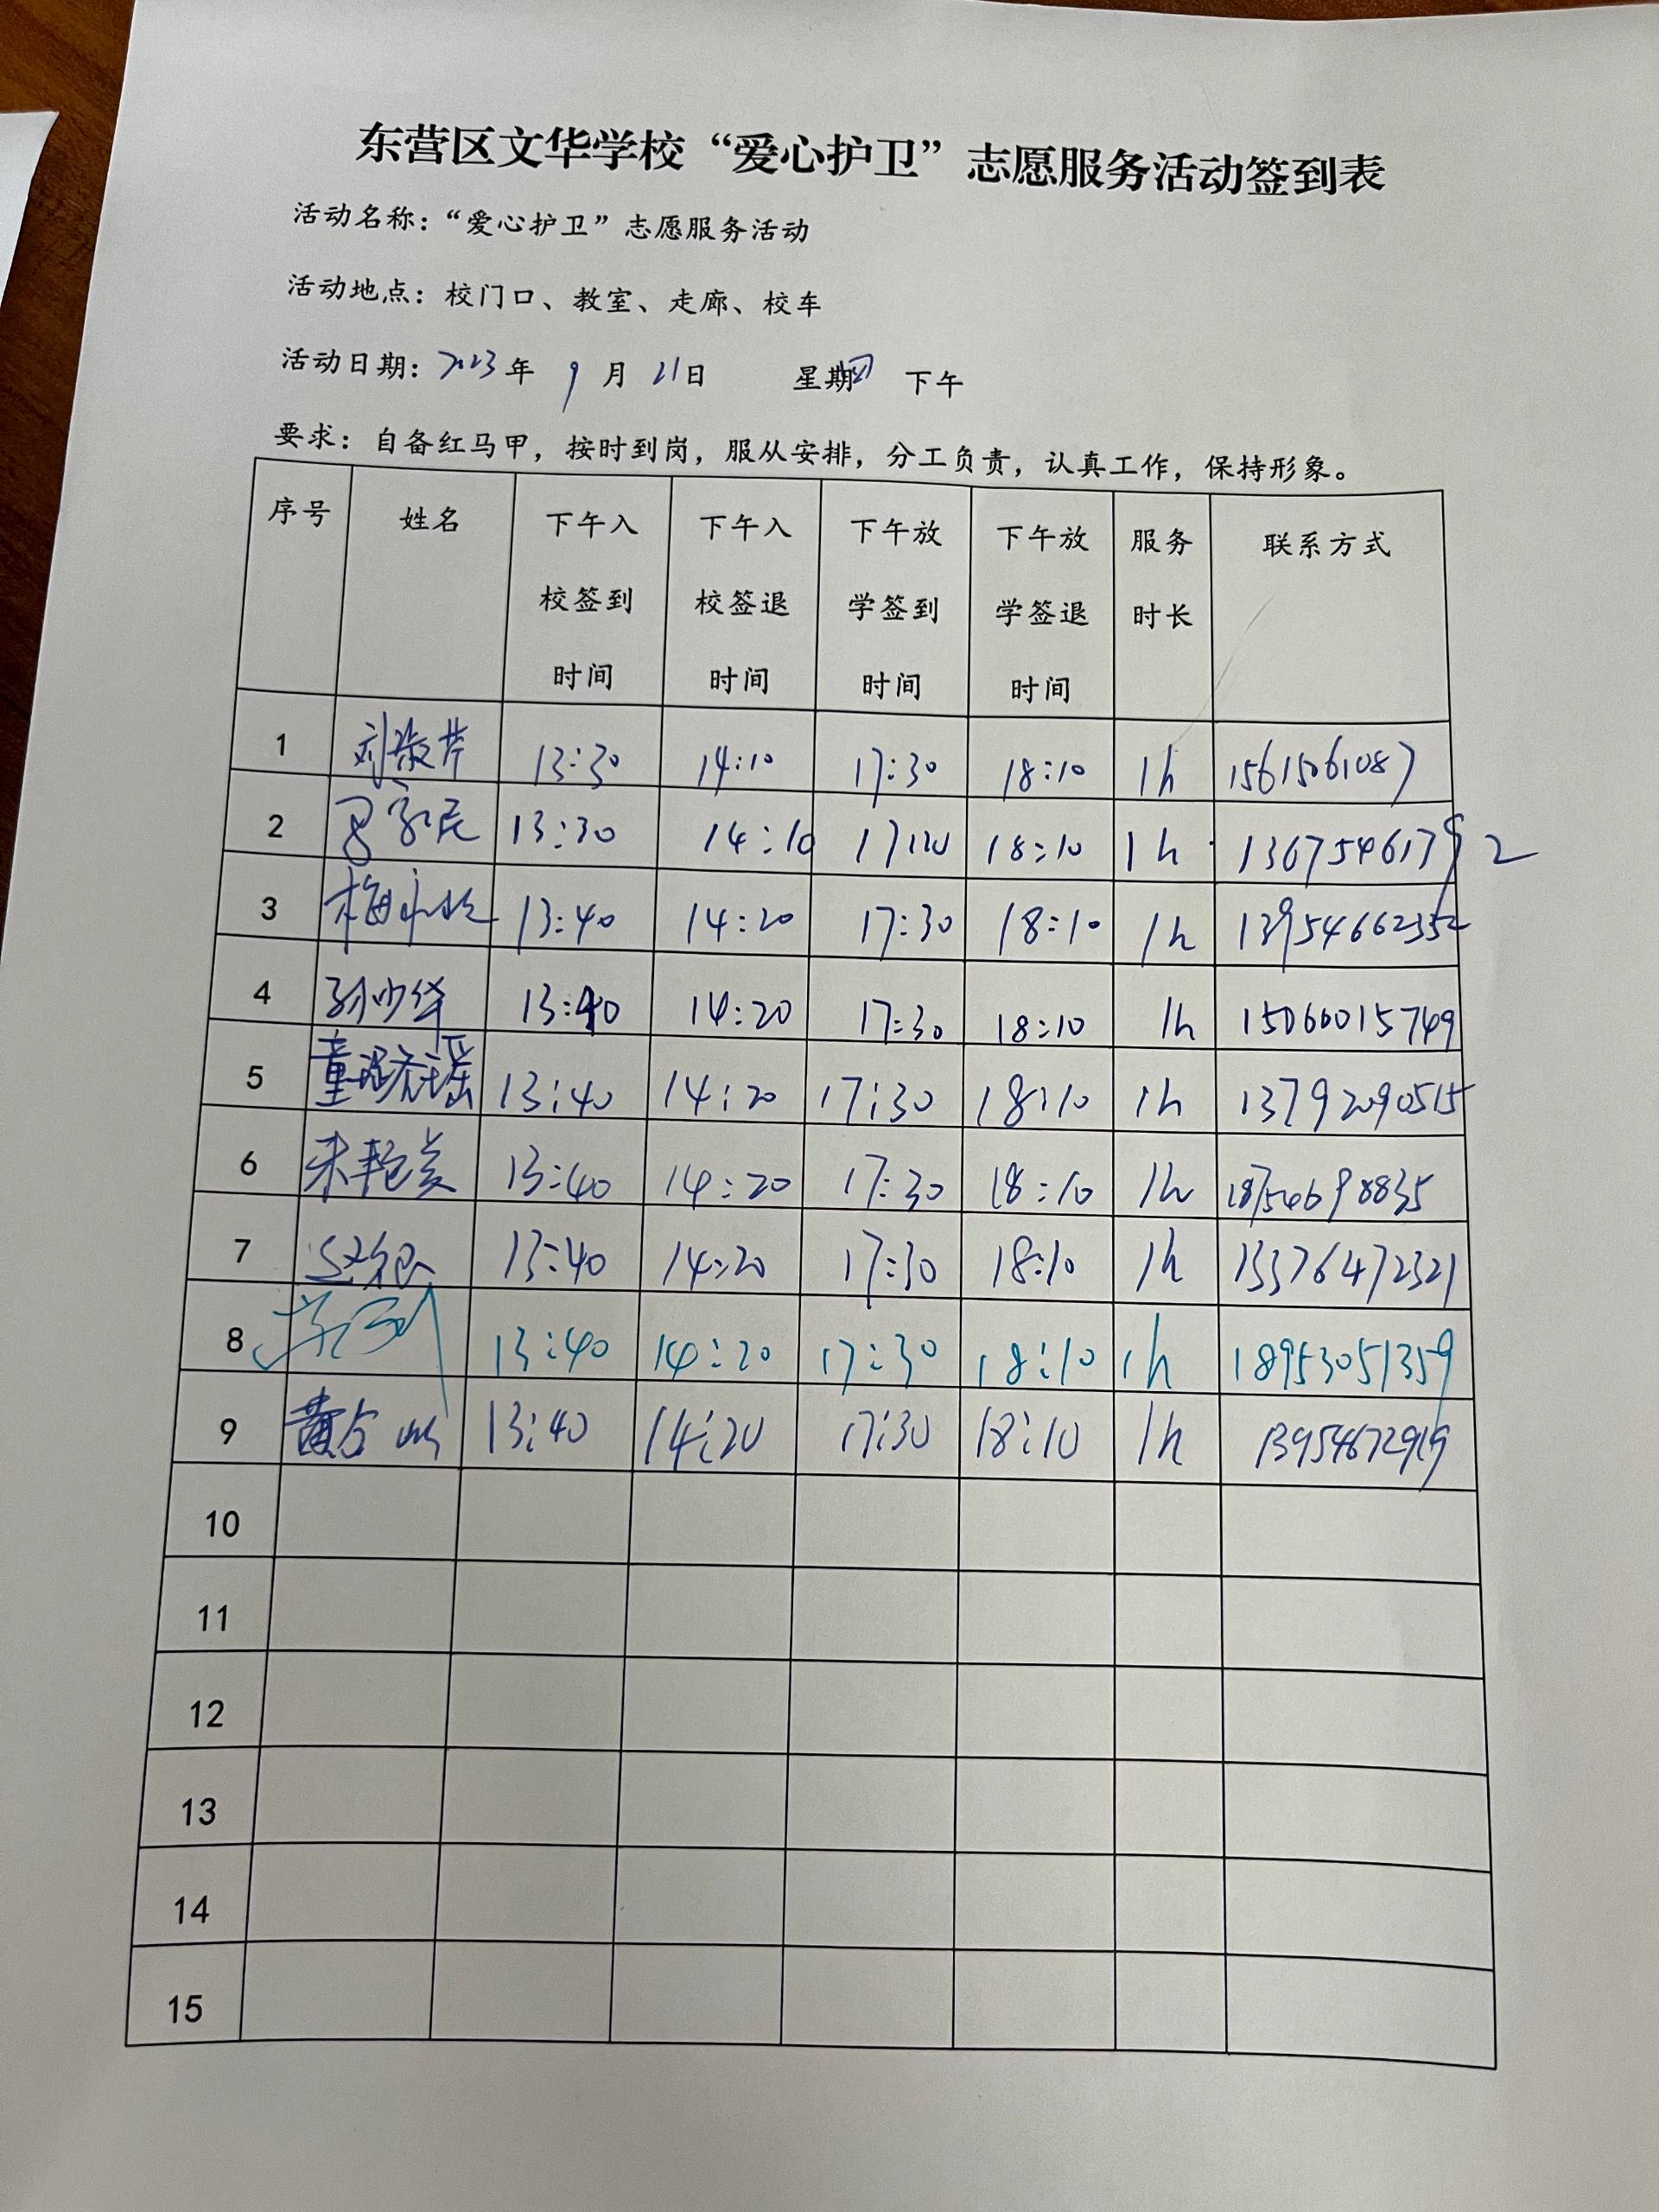 东营区文华学校“爱心护卫”志愿服务活动签到表
活动名称：“爱心护卫”志愿服务活动
活动地点：校门口、教室、走廊、校车
活动日期：2023年 9 月 21日 星期四 下午
要求：自备红马甲，按时到岗，服从安排，分工负责，认真工作，保持形象。
序号 姓名 下午入校签到时间 下午入校签退时间 下午放学签到时间 下午放学签退时间 服务时长 联系方式
1 刘淑芹 13:30 14:10 17:30 18:10 1h 15615061087
2 13:30 14:10 18:10 1h 13675461792
3 13:40 14:20 17:30 18:10 1h 13954662352
4 孙少华 13:40 14:20 17:30 18:10 1h 15066015749
5 13:40 14:20 17:30 18:10 1h 13792090515
6 13:40 14:20 17:30 18:10 1h 18754698835
7 13:40 14:20 17:30 18:10 1h 13376472321
8 13:40 14:20 17:30 18:10 1h 18953051359
9 13:40 14:20 17:30 18:10 1h 13954672919
10
11
12
13
14
15